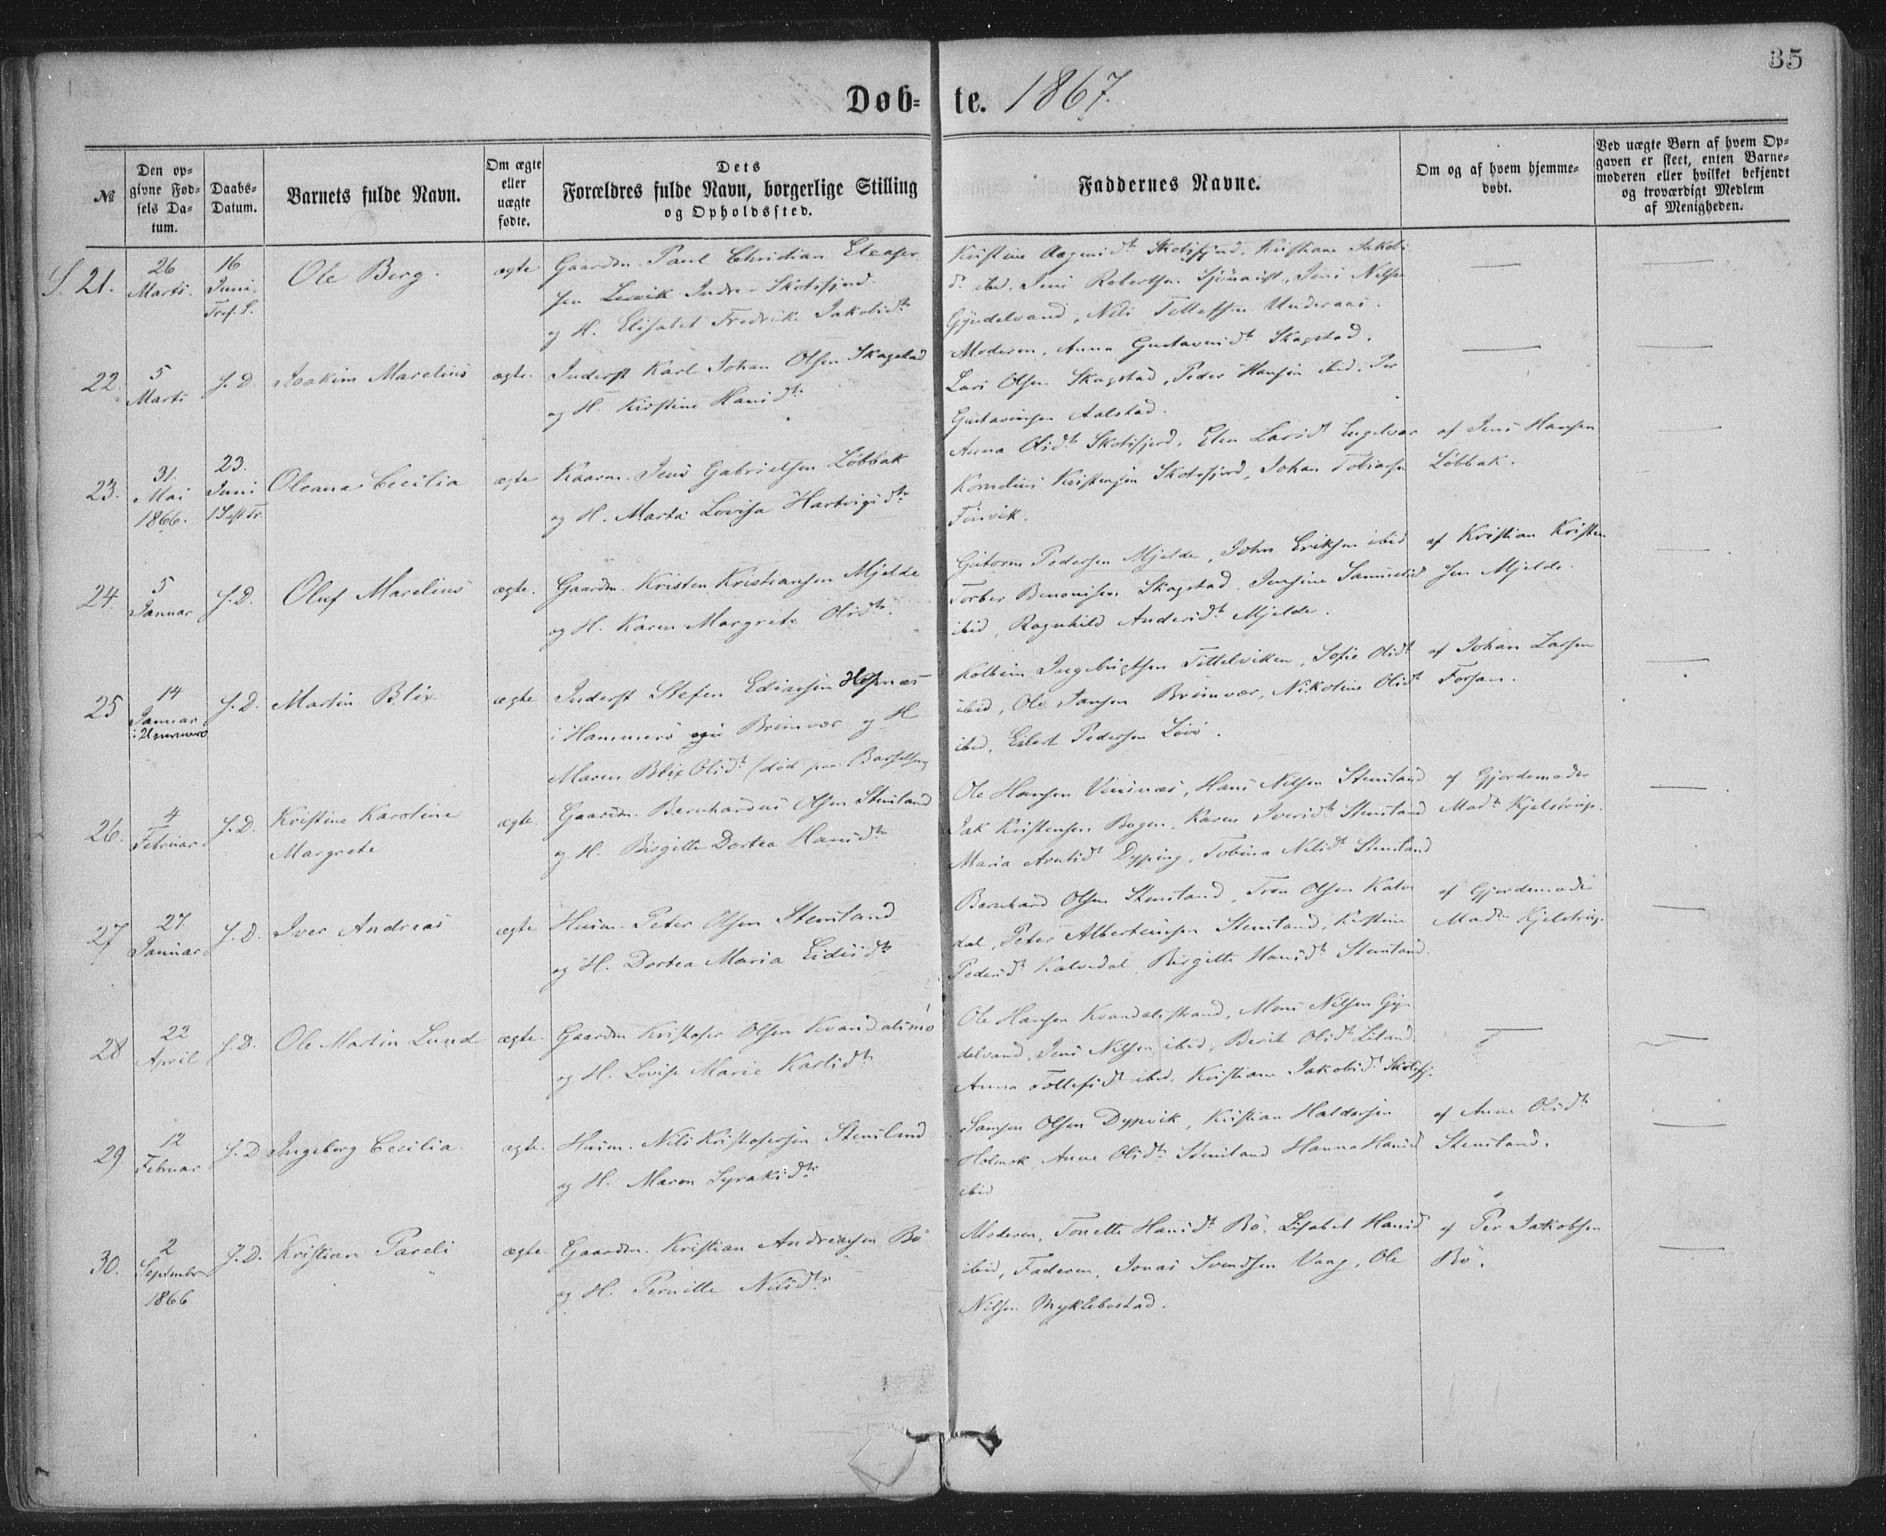 35
Døb-te. 1867.
№
Den op-
givne Fød-
sels Da-
tum.
Daabs-
Datum.
Barnets fulde Navn.
Om ægte
eller
uægte
fødte.
Dets
Forældres fulde Navn, borgerlige Stilling
og Opholdssted.
Faddernes Navne.
Om og af hvem hjemme-
døbt.
Ved uægte Børn af hvem Op-
gaven er skeet, enten Barne-
moderen eller hvilket bekjendt
og troværdigt Medlem
af Menigheden.
S. 21.
26
Marts.
16
Juni.
Tref. S.
Ole Berg.
ægte
Gaardm. Paul Christian Eleaser
sen Indre-Skotsfjord.
og H. Elisabet Fredrike Jakobsdtr
Kristine Skotsfjord, Kristiane Jakobs
dtr ibid, Jens Robertsen, Jens Nilsen
Gyndelvand, Nils Tollefsen Underaas.
22.
5
Marts
S. D.
Joakim Marelius
ægte.
Inderst Karl Johan Olsen Skagstad
og H. Kristine Hansdtr
Moderen, Anna Gustavsdtr Skagstad,
Lars Olsen Skagstad, Peder Hansen ibid, Per
Gustavsen Aalstad.
23.
31.
Mai
1866.
23.
Juni
1 S. eft. Tr.
Oleana Cecilia
ægte
Kaarm. Jens Gabrielsen Løbbak
og H. Marta Lovisa Hartvigsdtr
Anna Olsdtr Skotsfjord, Elen Larsdtr Engelvær
Kornelius Kristensen Skotsfjord, Johan Tobiassen
Finvik.
af Jens Hansen
Løbbak.
24.
5
Januar
S. D.
Oluf Marelius
ægte.
Gaardm. Kristen Kristiansen Mjelde
og H. Karen Margrete Olsdtr.
Gutorm Pedersen Mjelde, John Eriksen ibid
Torber Benonisen Skagstad, Jensine Samuelsd
ibid, Ragnhild Andersdtr Mjelde.
af Kristian Kristen
sen Mjelde.
25
14
Januar
i Hammerø
S. D.
Martin Blix
ægte
Inderst Stefen Ediassen Hesnæs
i Hammerø Brunvær og H
Maren Blix Olsdtr (død paa Barselseng
Kolbein Ingebrigtsen Tittelviken, Sofie Olsdtr
ibid, Ole Jansen Brunvær, Nikoline Olsdtr
ibid, Eilert Pedersen Løvø.
af Johan Larsen
Forsan.
26.
4
Februar
S. D.
Kristine Karoline
Margrete
ægte.
Gaardm. Bernhardus Olsen Stensland
og H. Birgitte Dortea Hansdtr
Ole Hansen Vinsnæs, Hans Nilsen Stensland
Isk Kristensen Bogen, Karen Iversdtr Stensland
Maria Arntsdtr Dypping, Tobina Nilsdtr Stensland
af Gjordemoder
Madm Kjelstrup.
27
27
Januar
S. D.
Iver Andreas
ægte
Husm. Peter Olsen Stensland
og H. Dortea Maria Eidisdtr
Bernhard Olsen Stensland, Tron Olsen Kalve
dal, Peter Albertinsen Stensland, Kirstine
Pedersdtr Kalvedal, Birgitte Hansdtr Stensland.
af Gjordemoder
Madm Kjelstrup.
28
22
April
S. D.
Ole Martin Lund
ægte.
Gaardm Kristofer Olsen Kvandalsmo
og H. Lovise Marie Karlsdtr
Ole Hansen Kvandalstrand, Mons Nilsen Gyn
delvand, Jens Nilsen ibid, Berit Olsdtr Leland
Anna Tollefsdtr ibid, Kristiane Jakobsdtr Skotsfj.
29
12
Februar
S. D.
Ingeborg Cecilia.
ægte.
Husm. Nils Kristofersen Stensland
og H. Maren Syraksdtr
Samson Olsen Dypvik, Kristian Haldorsen
Holmok, Anne Olsdtr Stensland Hanna Hansd
ibid
af Anne Olsdtr
Stensland.
30.
2
September
1866
S. D.
Kristian Pareli
ægte.
Gaardm. Kristian Andreassen Bø
og H. Pernille Nilsdtr
Moderen, Tonette Hansdtr Bø, Lisabet Hansd
ibid, Faderen, Jonas Svendsen Vaag, Ole
Nilsen Myklebostad.
af Per Jakobsen
Bø.